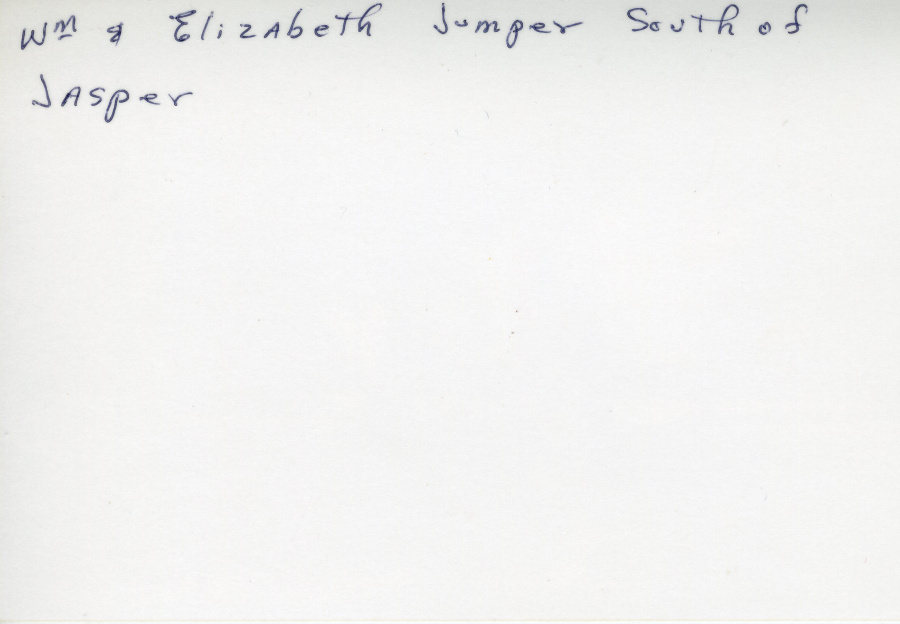 Wm & Elizabeth Jumper South of
Jasper